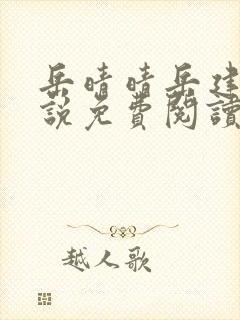 岳晴晴岳建
說免費閱讀
越人歌